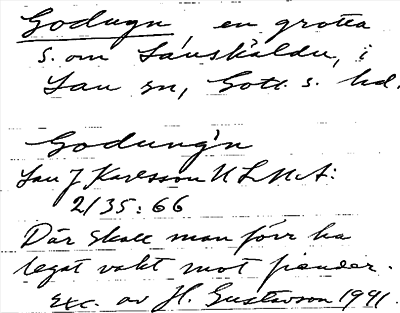 Godugn, en grotta
s. om Lauskäldu, i
Lau sn, Gotl. s. hd.
Godungń
Lau J Karlsson ULMA:
2135:66
Där skall man förr ha
legat vakt mot fiender.
Exc. av H. Gustavson 1991.